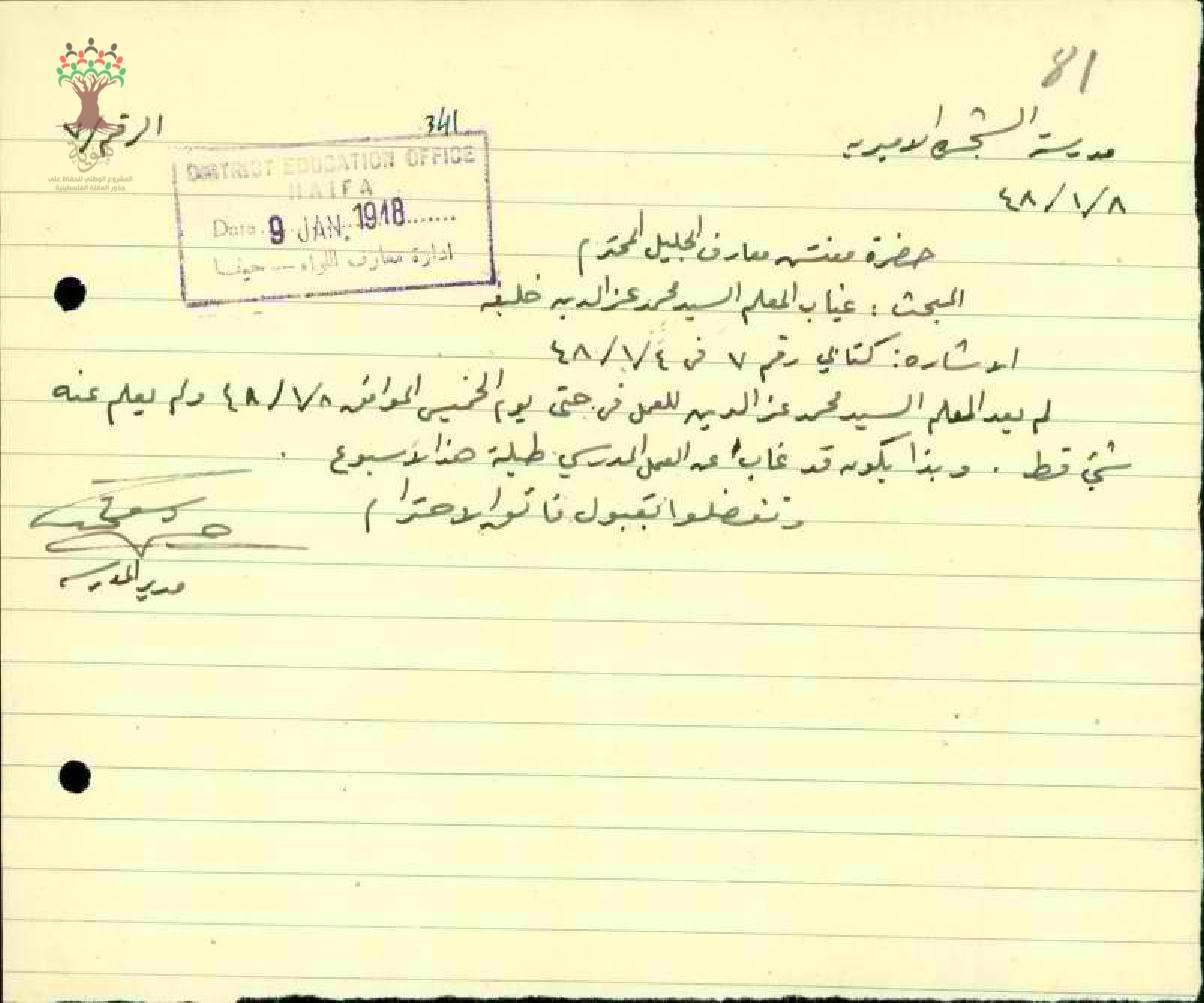 81
مدرسة الشجرة الاميرية
الرقم/
341
٤٨/١/٨
DISTRICT EDUCATION OFFICE
HAIFA
Date 9 JAN. 1948
ادارة معارف اللواء — حيفا
المشروع الوطني للحفاظ على
جذور العائلة الفلسطينية
حضرة مفتش معارف الجليل المحترم
المبحث : غياب المعلم السيد محمد عز الدين خليفه
الاشاره : كتابي رقم ٧ في ٤٨/١/٤
لم يعد المعلم السيد محمد عز الدين للعمل في حتى يوم الخميس الموافق ٤٨/١/٨ ولم يعلم عنه
شئ قط . وبذا يكون قد غاب عن العمل المدرسي طيلة هذا الاسبوع .
وتفضلوا بقبول فائق الاحترام
مدير المدرسه